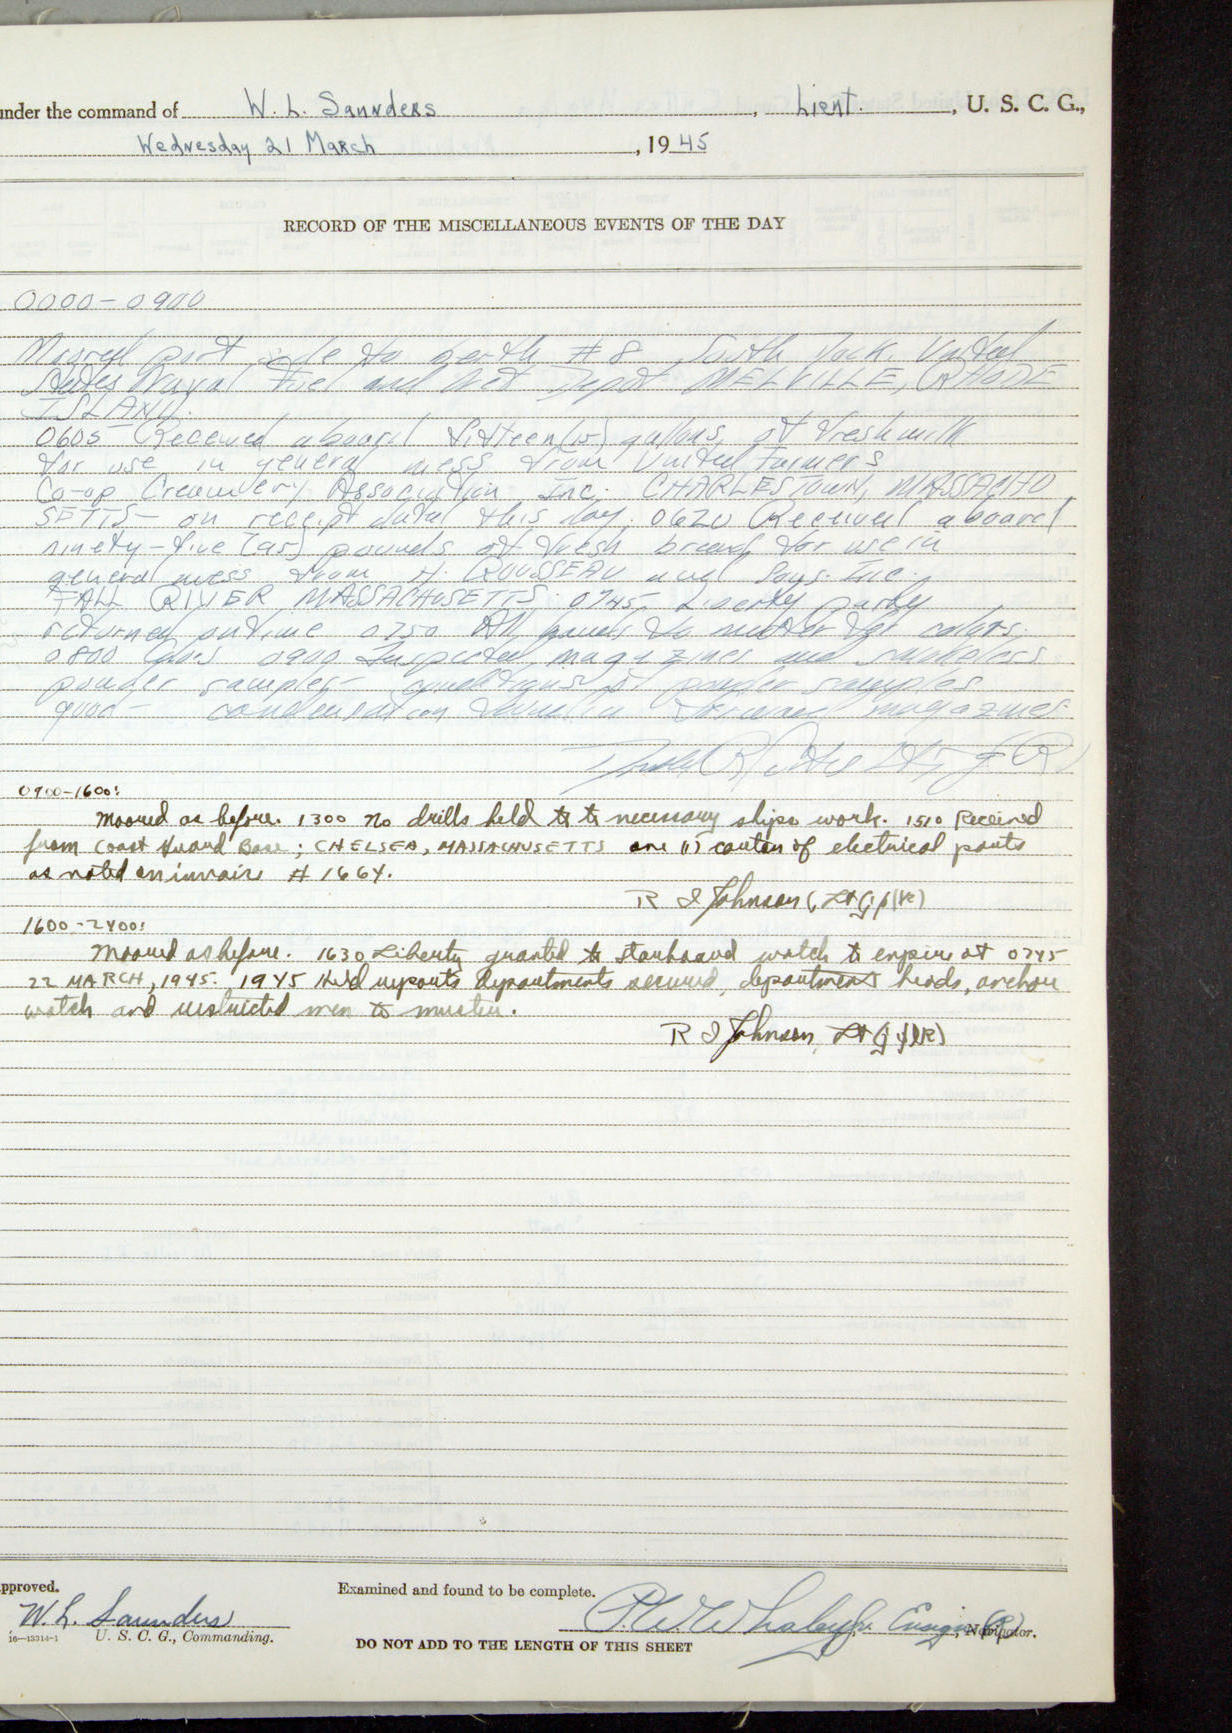 under the command of W. L. Saunders, Lieut., U. S. C. G.,
Wednesday 21 March, 1945
RECORD OF THE MISCELLANEOUS EVENTS OF THE DAY
0000-0900
Moored port side to berth #8, South Dock. United
States Naval Fuel and Net Depot MELVILLE, RHODE
ISLAND.
0605 Received aboard fifteen (15) gallons of fresh milk
for use in general mess from United Farmers
Co-op Creamery Association Inc. CHARLESTOWN, MASSACHU
SETTS - on receipt dated this day. 0620 Received aboard
ninety-five (95) pounds of fresh bread for use in
general mess from H. ROUSSEAU and Sons. Inc.
FALL RIVER MASSACHUSETTS. 0745 Liberty party
returned on time 0750 All hands to muster for colors.
0800 0900 Inspected magazines and smokeless
powder samples - conditions of powder samples
good - condensation found in forward magazines.
0900-1600:
Moored as before. 1300 No drills held to necessary ships work. 1510 Received
from Coast Guard Base; CHELSEA, MASSACHUSETTS one (1) carton of electrical parts
as noted on invoice # 1664.
R I Johnson, Lt (jg) (R)
1600-2400:
Moored as before. 1630 Liberty granted to starboard watch to expire at 0745
22 MARCH, 1945. 1945 Held reports departments secured, department heads, anchor
watch and restricted men to muster.
R I Johnson, Lt (jg) (R)
Approved.
Examined and found to be complete.
W. L. Saunders
U. S. C. G., Commanding.
P. W. Whaley Jr. Ensign (R), Navigator.
16-13314-1
DO NOT ADD TO THE LENGTH OF THIS SHEET